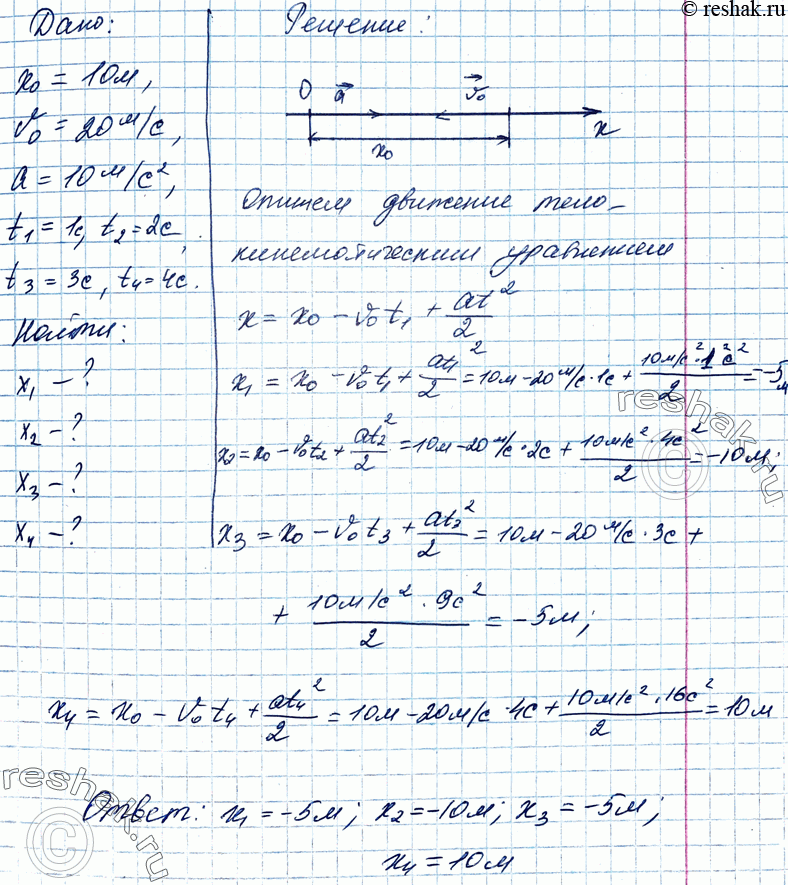 © reshak.ru
Дано:
x₀ = 10м,
v₀ = 20 м/с,
a = 10 м/с²,
t₁ = 1с, t₂ = 2с,
t₃ = 3с, t₄ = 4с.
Найти:
x₁ – ?
x₂ – ?
x₃ – ?
x₄ – ?
Решение:
0 a⃗ v⃗₀
x₀ x
Опишем движение тело-
кинематическим уравнением
x = x₀ – v₀t₁ + at²/2
x₁ = x₀ – v₀t₁ + at₁²/2 = 10м – 20 м/с · 1с + 10м/с² · 1²с²/2 = –5м
x₂ = x₀ – v₀t₂ + at₂²/2 = 10м – 20 м/с · 2с + 10м/с² · 4с²/2 = –10м;
x₃ = x₀ – v₀t₃ + at₃²/2 = 10м – 20 м/с · 3с +
+ 10м/с² · 9с²/2 = –5м;
x₄ = x₀ – v₀t₄ + at₄²/2 = 10м – 20м/с · 4с + 10м/с² · 16с²/2 = 10м
Ответ: x₁ = –5м; x₂ = –10м; x₃ = –5м;
x₄ = 10м
reshak.ru
©
reshak.ru
©